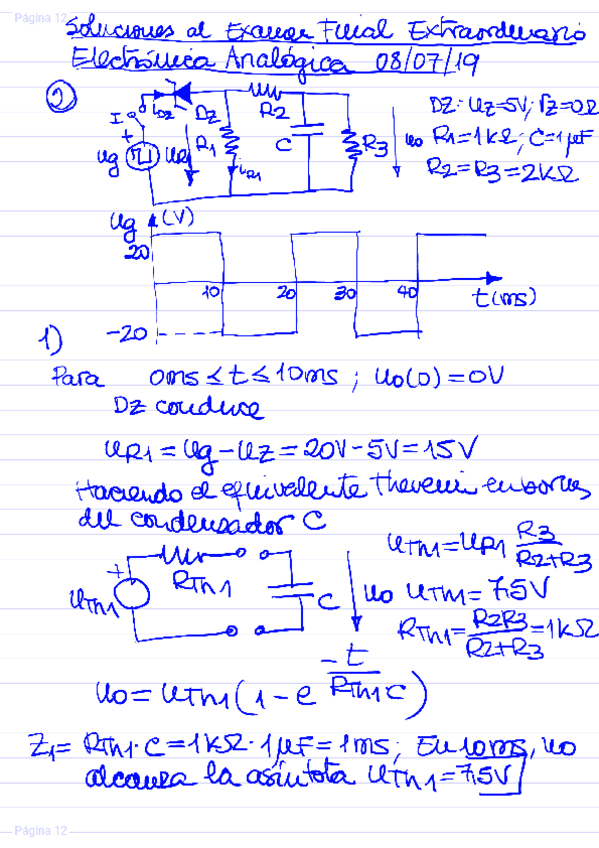 Página 12
Soluciones al Examen Final Extraordinario
Electrónica Analógica 08/07/19
2)
I iDZ DZ R2
+ ug uR1 R1 iR1 C R3 uo
DZ: uz=5V; rz=0Ω
R1=1kΩ; C=1μF
R2=R3=2kΩ
ug (V)
20
10 20 30 40
t(ms)
-20
1)
Para 0ms ≤ t ≤ 10ms ; uo(0)=0V
Dz conduce
uR1 = ug - uz = 20V - 5V = 15V
Haciendo el equivalente thevenin en bornes
del condensador C
+ uTh1 RTh1 C uo
uTh1 = uR1 R3/(R2+R3)
uTh1 = 7,5V
RTh1 = R2R3/(R2+R3) = 1kΩ
uo = uTh1 (1 - e^(-t/(RTh1 C)))
Z1 = RTh1·C = 1kΩ·1μF = 1ms; En 10ms, uo
alcanza la asíntota uTh1 = 7,5V
Página 12